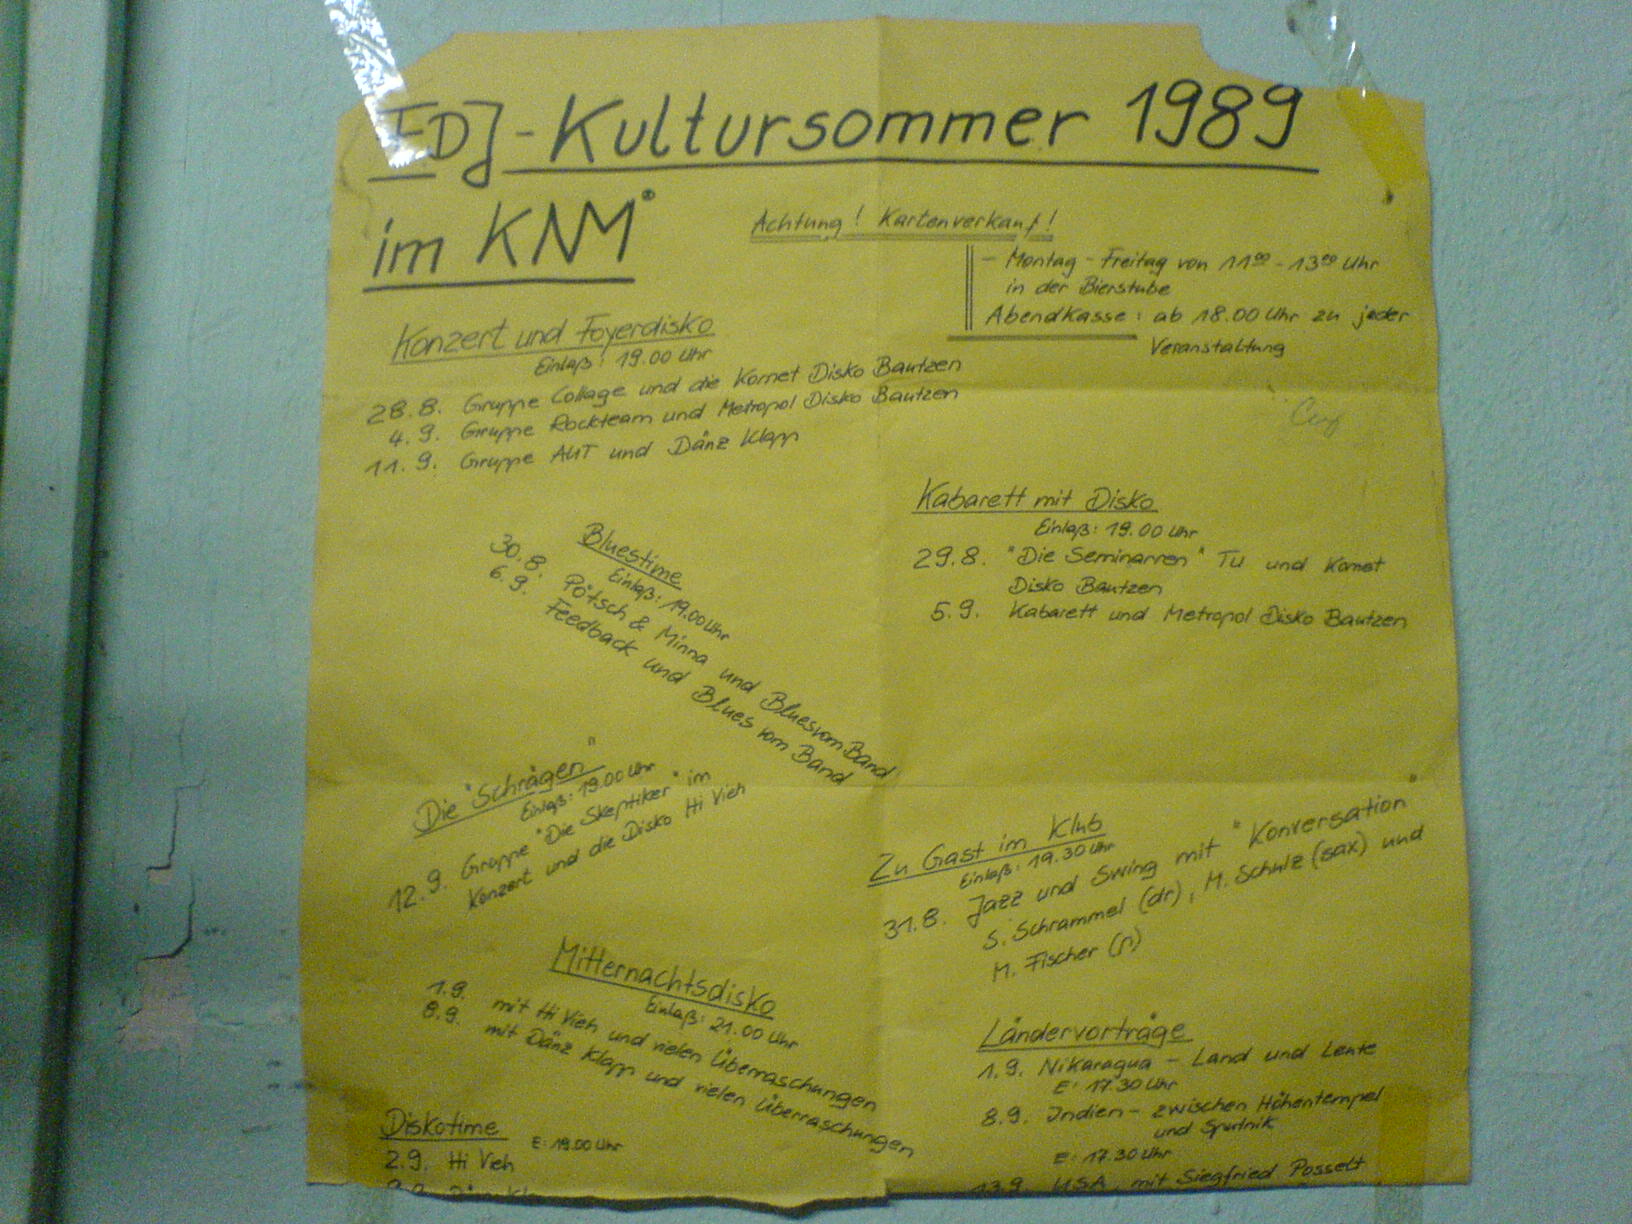 FDJ-Kultursommer 1989
im KNM"
Achtung! Kartenverkauf!
- Montag - Freitag von 11⁰⁰ - 13⁰⁰ Uhr
in der Bierstube
Abendkasse: ab 18.00 Uhr zu jeder
Veranstaltung
Konzert und Foyerdisko
Einlaß: 19.00 Uhr
28.8. Gruppe Collage und die Komet Disko Bautzen
4.9. Gruppe Rockteam und Metropol Disko Bautzen
11.9. Gruppe AUT und Dänz Klapp
Kabarett mit Disko
Einlaß: 19.00 Uhr
29.8. "Die Seminarren" TU und Komet
Disko Bautzen
5.9. Kabarett und Metropol Disko Bautzen
Bluestime
Einlaß: 19.00 Uhr
30.8. Pötsch & Minna und Blues vom Band
6.9. Feedback und Blues vom Band
Die "Schrägen"
Einlaß: 19.00 Uhr
12.9. Gruppe "Die Skeptiker" im
Konzert und die Disko Hi Vieh
Zu Gast im Klub
Einlaß: 19.30 Uhr
31.8. Jazz und Swing mit "Konversation"
S. Schrammel (dr), M. Schulz (sax) und
M. Fischer (p)
Mitternachtsdisko
Einlaß: 21.00 Uhr
1.9. mit Hi Vieh und vielen Überraschungen
8.9. mit Dänz Klapp und vielen Überraschungen
Ländervorträge
1.9. Nikaragua - Land und Leute
E: 17.30 Uhr
8.9. Indien - zwischen Höhentempel
und Sputnik
E: 17.30 Uhr
13.9. USA, mit Siegfried Posselt
Diskotime E: 19.00 Uhr
2.9. Hi Vieh